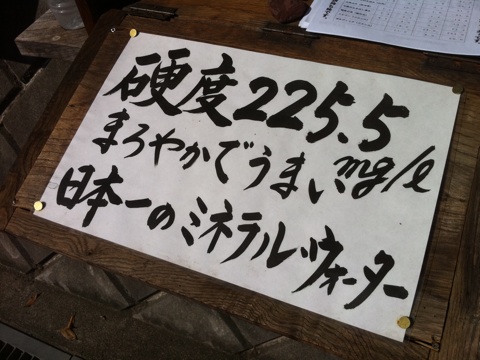 硬度225.5
mg/l
まろやかでうまい
日本一のミネラルウォーター